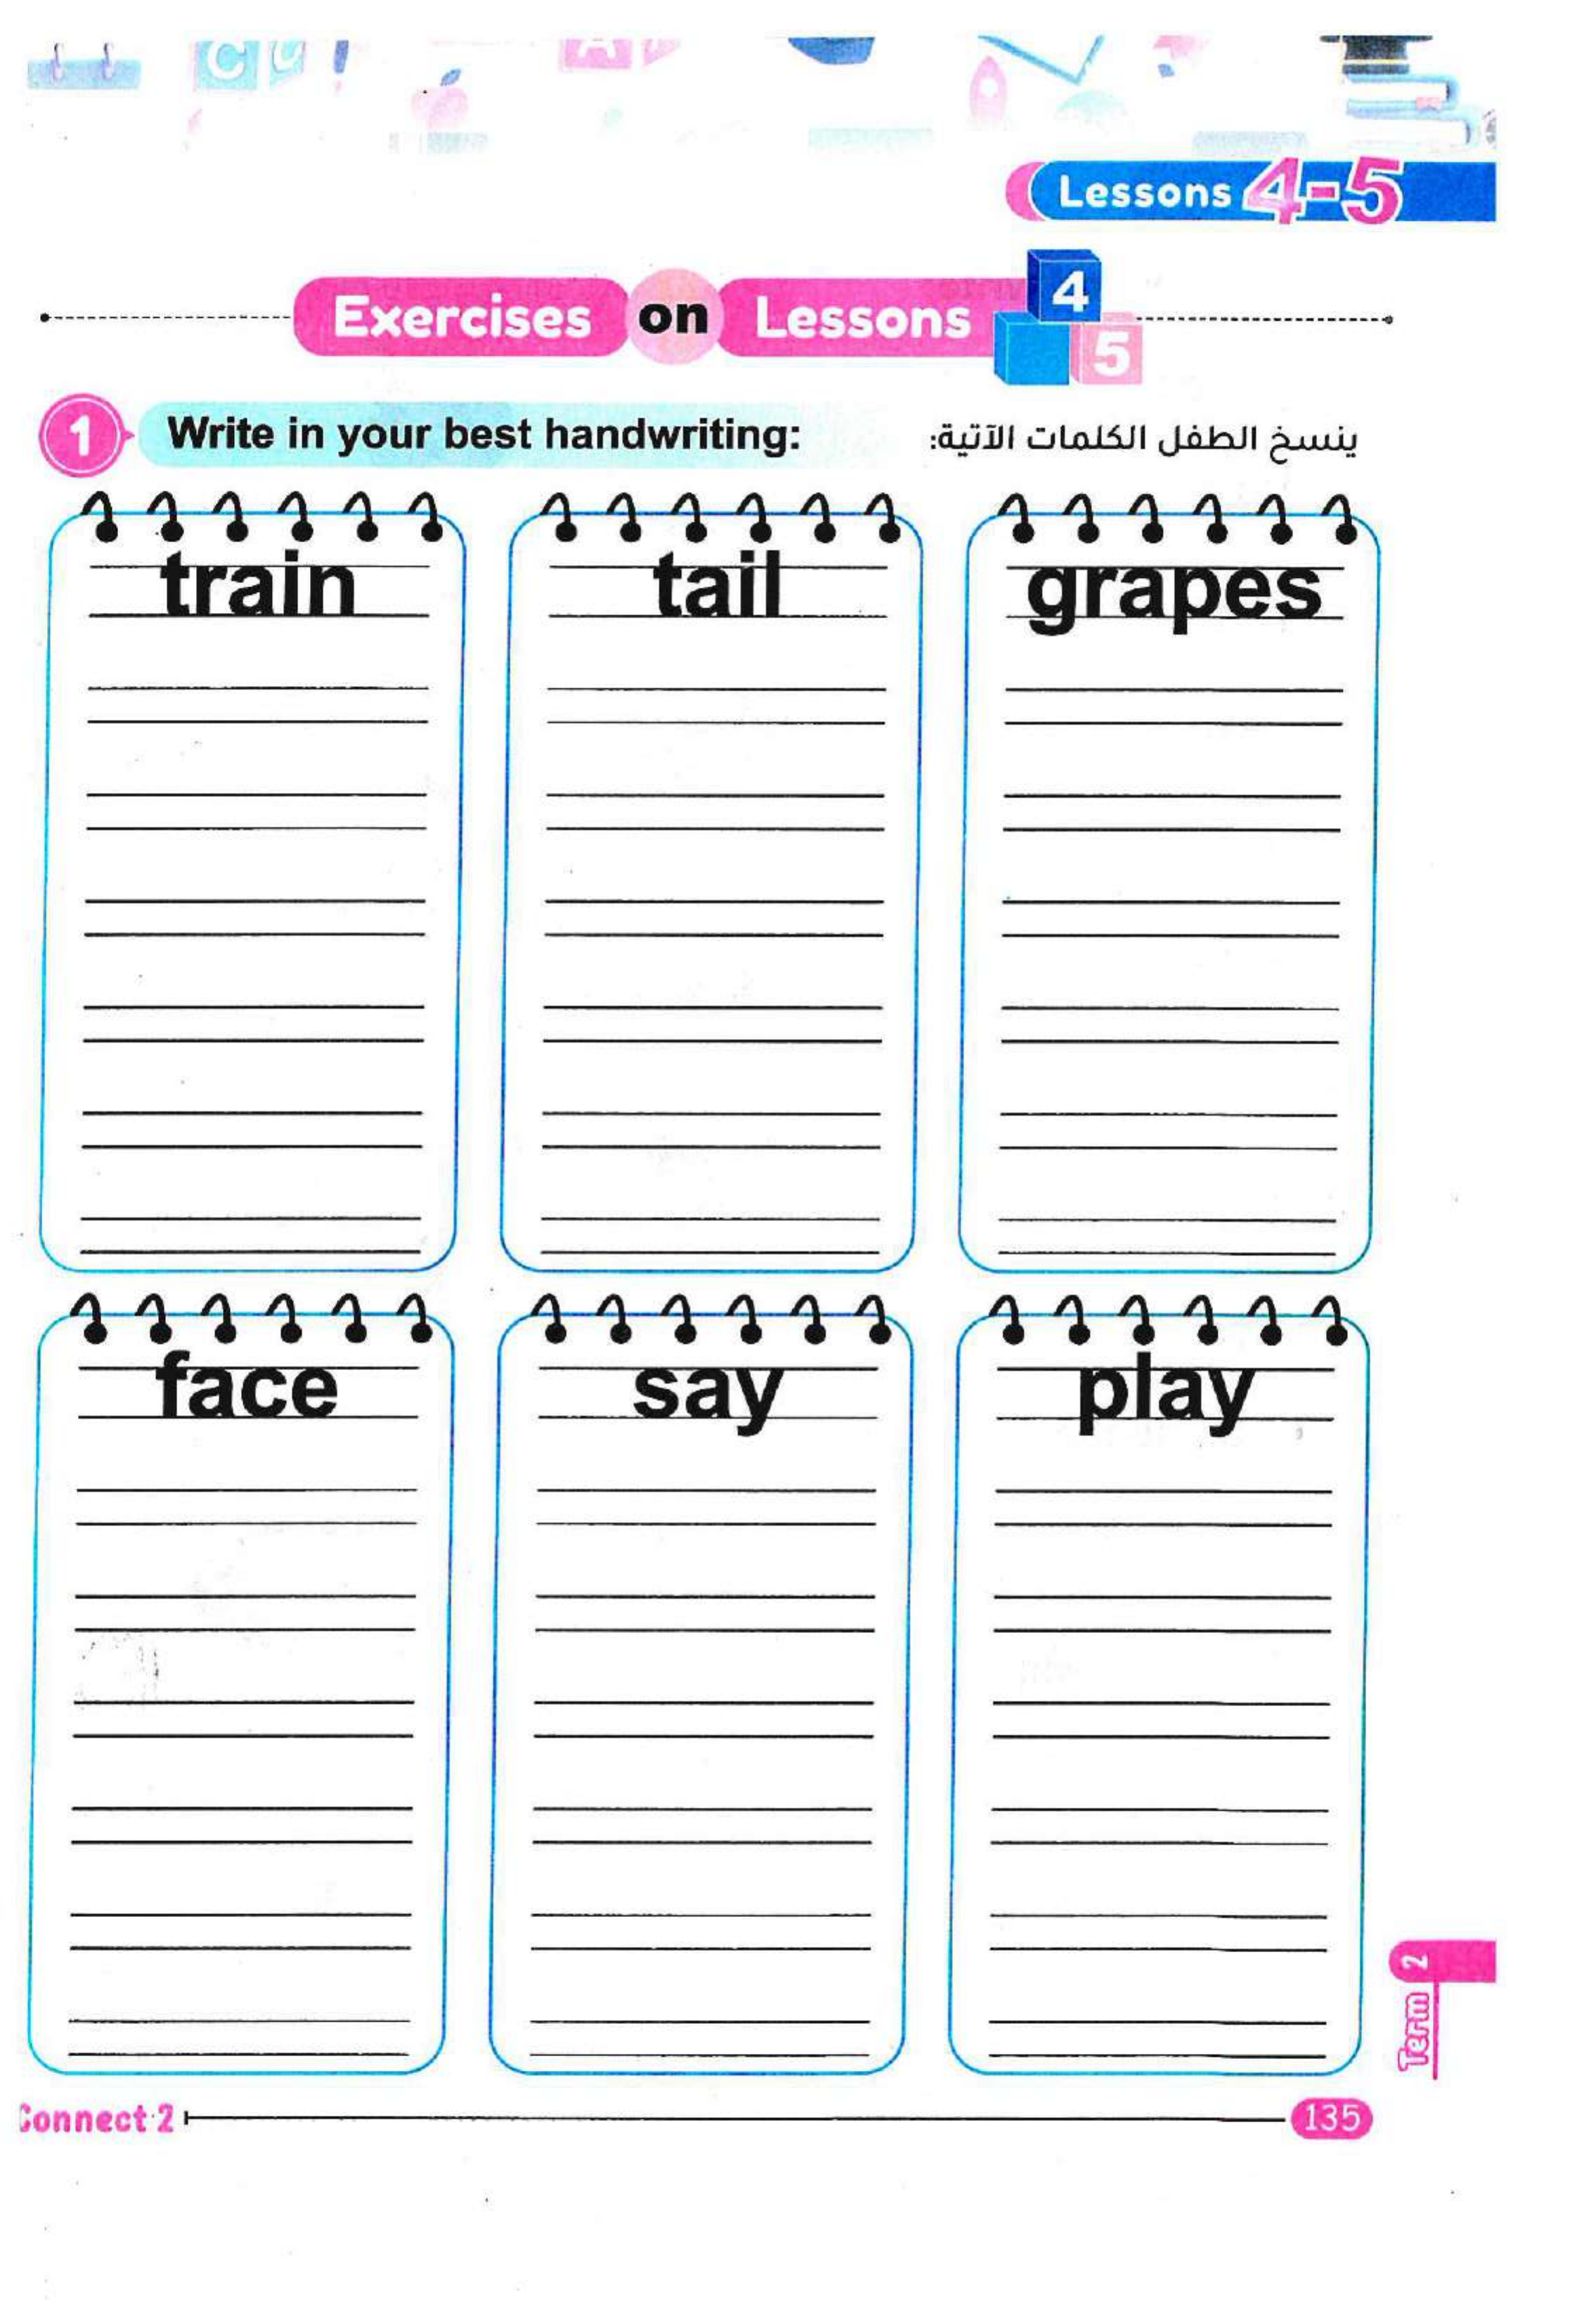 Lessons 4-5
Exercises on Lessons 4 5
1 Write in your best handwriting:
ينسخ الطفل الكلمات الآتية:
train
tail
grapes
face
say
play
Term 2
Connect 2
135